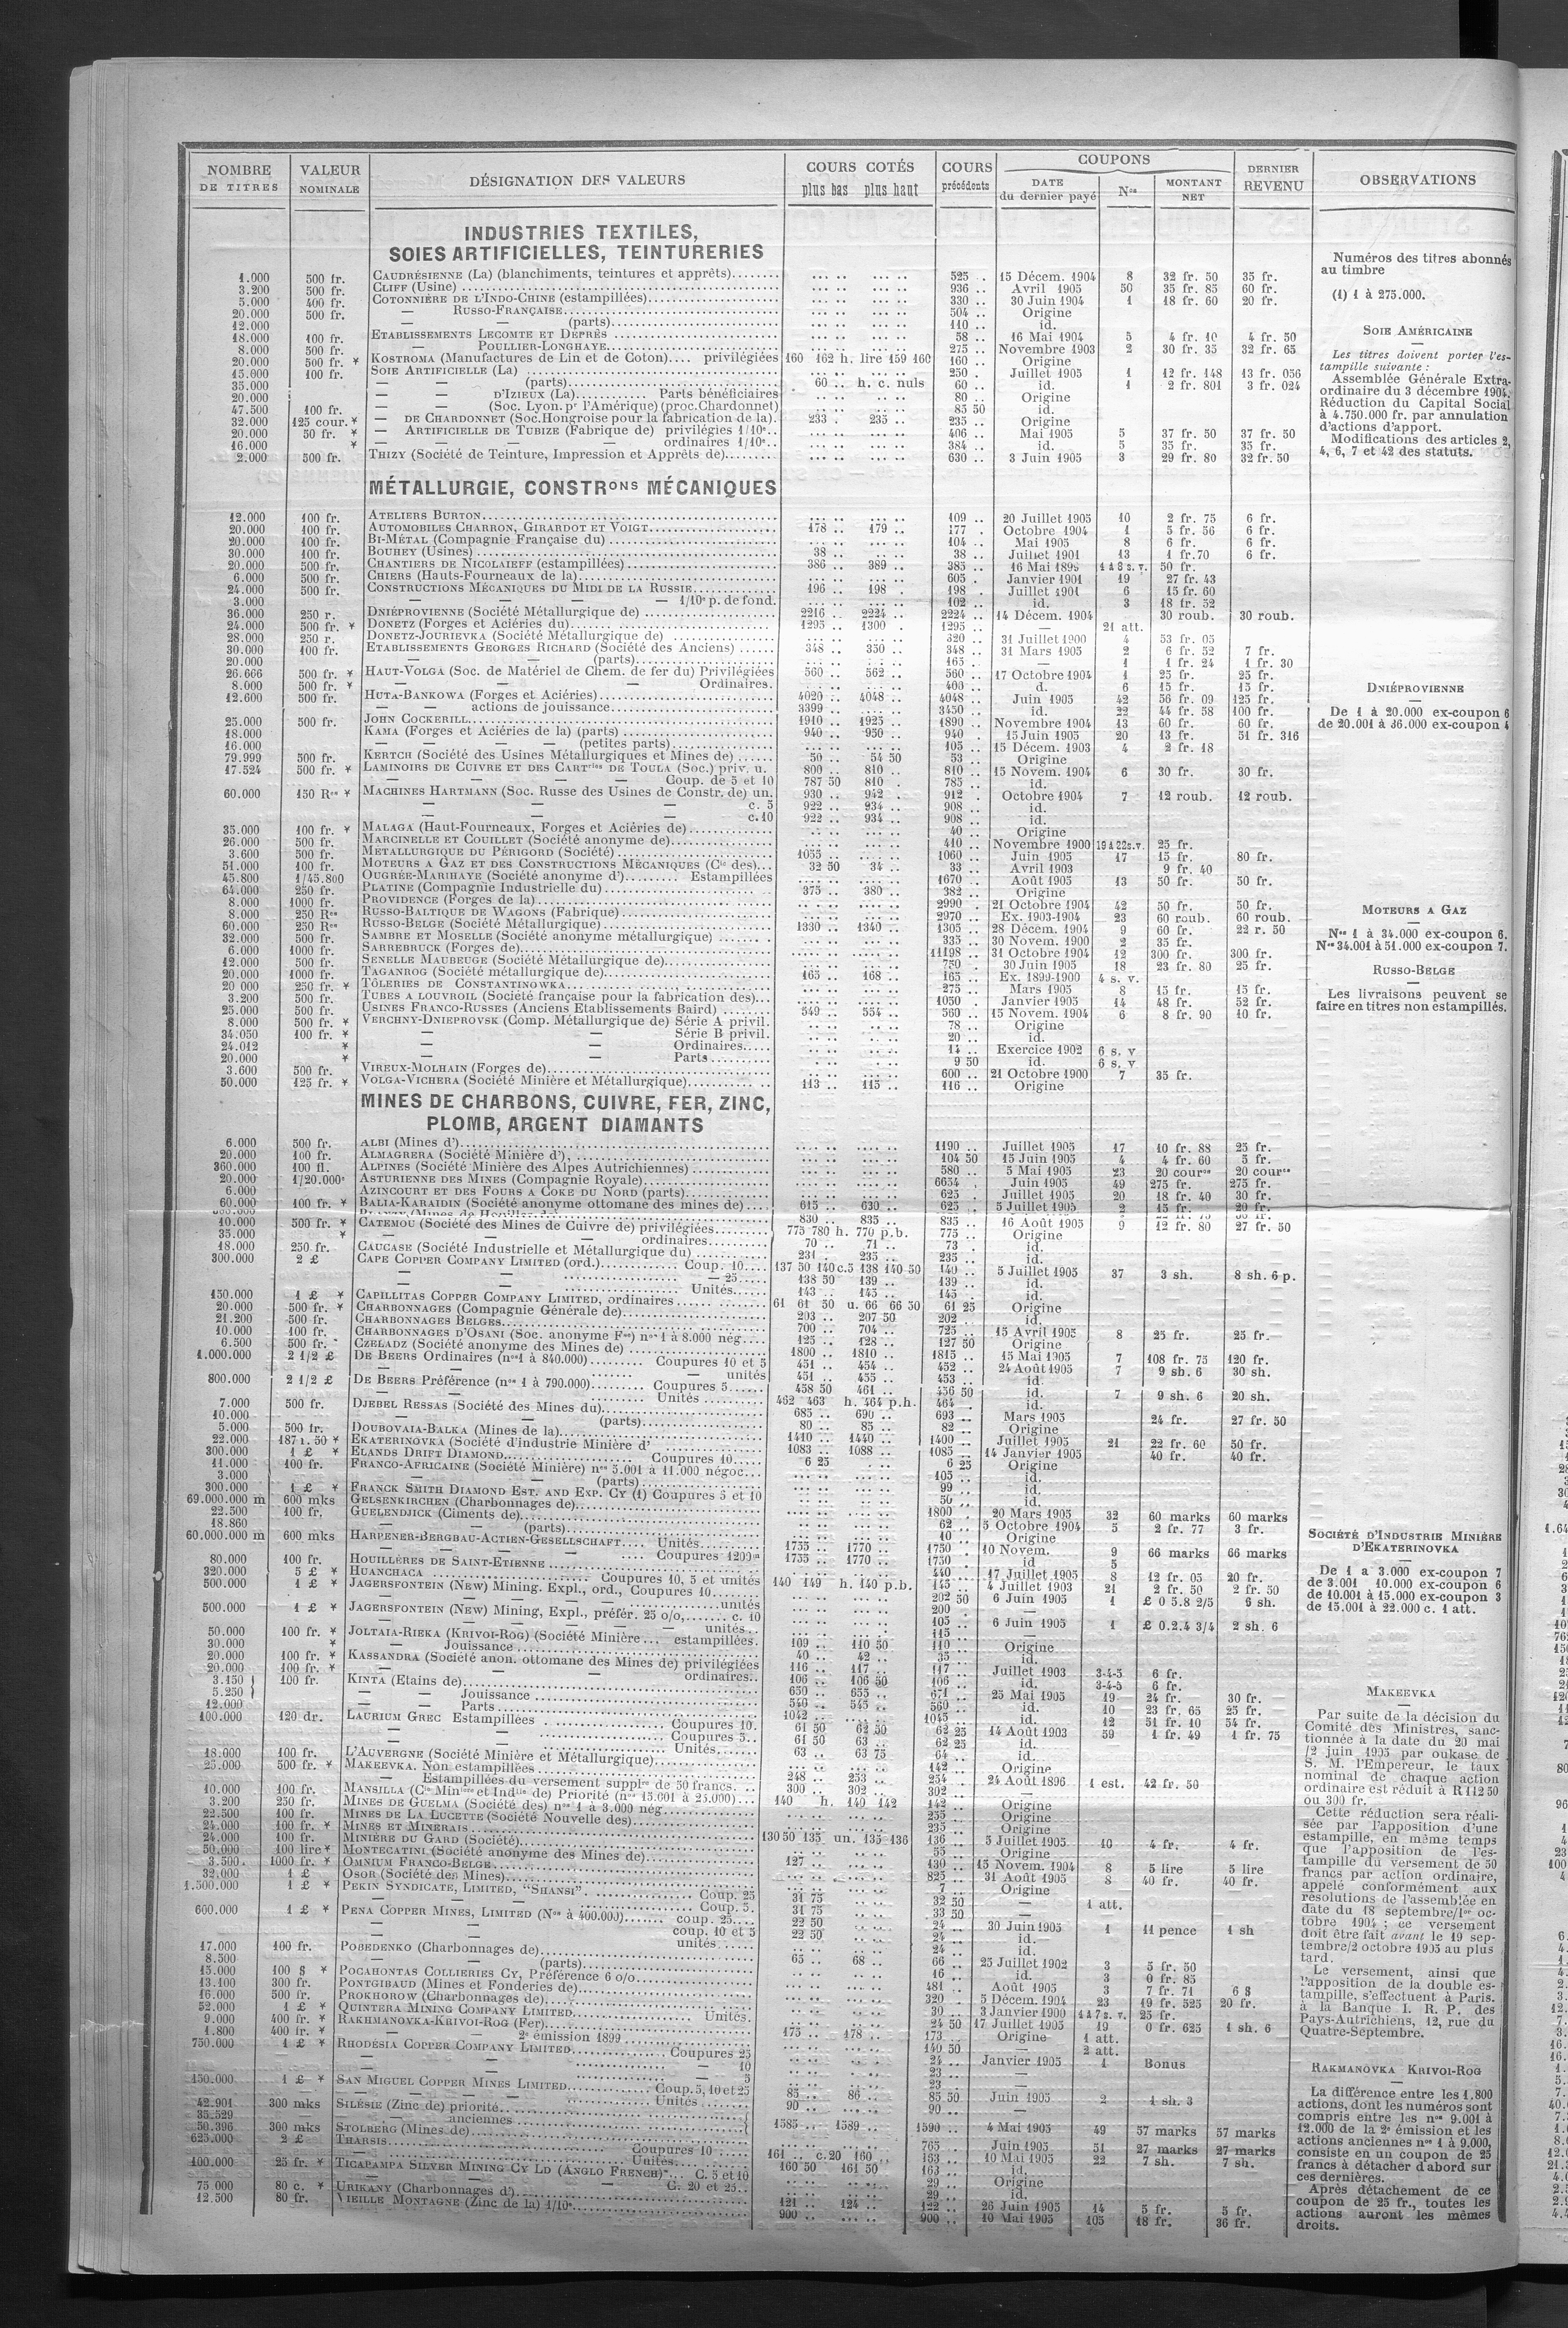 NOMBRE DE TITRES | VALEUR NOMINALE | DÉSIGNATION DES VALEURS | COURS COTÉS plus bas plus haut | COURS précédents | COUPONS DATE du dernier payé | Nos | MONTANT NET | DERNIER REVENU | OBSERVATIONS
INDUSTRIES TEXTILES,
SOIES ARTIFICIELLES, TEINTURERIES
1.000 500 fr. CAUDRÉSIENNE (La) (blanchiments, teintures et apprêts) 525 .. 15 Décem. 1904 8 32 fr. 50 35 fr.
3.200 500 fr. CLIFF (Usine) 936 .. Avril 1905 50 35 fr. 85 60 fr.
5.000 400 fr. COTONNIÈRE DE L'INDO-CHINE (estampillées) 330 .. 30 Juin 1904 1 18 fr. 60 20 fr.
20.000 500 fr. — RUSSO-FRANÇAISE 504 .. Origine
12.000 — — (parts) 110 .. id.
18.000 100 fr. ETABLISSEMENTS LECOMTE ET DEPRÈS 58 .. 16 Mai 1904 5 4 fr. 10 4 fr. 50
8.000 500 fr. — POULLIER-LONGHAYE 275 .. Novembre 1903 2 30 fr. 35 32 fr. 65
20.000 500 fr. ¥ KOSTROMA (Manufactures de Lin et de Coton).... privilégiées 160 162 h. lire 159 160 160 .. Origine
15.000 100 fr. SOIE ARTIFICIELLE (La) 250 . Juillet 1905 1 12 fr. 148 13 fr. 056
35.000 — — (parts) 60 .. h. c. nuls 60 .. id. 1 2 fr. 801 3 fr. 024
20.000 — D'IZIEUX (La) Parts bénéficiaires 80 .. Origine
47.500 100 fr. — (Soc. Lyon. pr l'Amérique) (proc. Chardonnet) 85 50 id.
32.000 125 cour. ¥ — DE CHARDONNET (Soc. Hongroise pour la fabrication de la). 233 . 235 .. 235 .. Origine
20.000 50 fr. ¥ — ARTIFICIELLE DE TUBIZE (Fabrique de) privilégies 1/10e.. 406 .. Mai 1905 5 37 fr. 50 37 fr. 50
16.000 ¥ — — — ordinaires 1/10e.. 384 .. id. 5 35 fr. 35 fr.
2.000 500 fr. THIZY (Société de Teinture, Impression et Apprêts de) 630 .. 3 Juin 1905 3 29 fr. 80 32 fr. 50
MÉTALLURGIE, CONSTRons MÉCANIQUES
12.000 100 fr. ATELIERS BURTON 109 .. 20 Juillet 1905 10 2 fr. 75 6 fr.
20.000 100 fr. AUTOMOBILES CHARRON, GIRARDOT ET VOIGT 178 .. 179 .. 177 . Octobre 1904 1 5 fr. 56 6 fr.
20.000 100 fr. BI-MÉTAL (Compagnie Française du) 104 .. Mai 1905 8 6 fr. 6 fr.
30.000 100 fr. BOUHEY (Usines) 38 .. 38 .. Juillet 1901 13 1 fr. 70 6 fr.
20.000 500 fr. CHANTIERS DE NICOLAIEFF (estampillées) 386 .. 389 .. 385 .. 16 Mai 1899 1 à 8 s. v. 50 fr.
6.000 500 fr. CHIERS (Hauts-Fourneaux de la) 605 . Janvier 1901 19 27 fr. 43
24.000 500 fr. CONSTRUCTIONS MÉCANIQUES DU MIDI DE LA RUSSIE 196 .. 198 . 198 . Juillet 1901 6 15 fr. 60
3.000 — — — 1/10e p. de fond. 102 .. id. 3 18 fr. 52
36.000 250 r. DNIÉPROVIENNE (Société Métallurgique de) 2216 .. 2224 .. 2224 .. 14 Décem. 1904 30 roub. 30 roub.
24.000 500 fr. ¥ DONETZ (Forges et Aciéries du) 1295 .. 1300 . 1295 .. — 21 att.
28.000 250 r. DONETZ-JOURIEVKA (Société Métallurgique de) 320 .. 31 Juillet 1900 4 53 fr. 05
30.000 100 fr. ETABLISSEMENTS GEORGES RICHARD (Société des Anciens) 348 .. 350 .. 348 .. 31 Mars 1905 2 6 fr. 52 7 fr.
20.000 — — (parts) 165 .. — 1 1 fr. 24 1 fr. 30
26.666 500 fr. ¥ HAUT-VOLGA (Soc. de Matériel de Chem. de fer du) Privilégiées 560 .. 562 .. 560 .. 17 Octobre 1904 1 25 fr. 25 fr.
8.000 500 fr. ¥ — — Ordinaires. 400 .. d. 6 15 fr. 15 fr.
12.600 500 fr. HUTA-BANKOWA (Forges et Aciéries) 4020 .. 4048 .. 4048 .. Juin 1905 42 56 fr. 09 125 fr.
— — actions de jouissance 3399 .. 3450 .. id. 22 44 fr. 58 100 fr.
25.000 500 fr. JOHN COCKERILL 1910 .. 1925 .. 1890 .. Novembre 1904 13 60 fr. 60 fr.
18.000 KAMA (Forges et Aciéries de la) (parts) 940 .. 950 .. 940 . 15 Juin 1905 20 13 fr. 51 fr. 316
16.000 — — (petites parts) 105 .. 15 Décem. 1903 4 2 fr. 18
79.999 500 fr. KERTCH (Société des Usines Métallurgiques et Mines de) 50 .. 54 50 53 .. Origine
17.524 500 fr. ¥ LAMINOIRS DE CUIVRE ET DES CARTries DE TOULA (Soc.) priv. u. 800 .. 810 .. 810 .. 15 Novem. 1904 6 30 fr. 30 fr.
— — — Coup. de 5 et 10 787 50 810 . 785 .. id.
60.000 150 Res ¥ MACHINES HARTMANN (Soc. Russe des Usines de Constr. de) un. 930 .. 942 . 912 . Octobre 1904 7 12 roub. 12 roub.
— — — c. 5 922 .. 934 .. 908 .. id.
— — — c. 10 922 .. 934 .. 908 .. id.
35.000 100 fr. ¥ MALAGA (Haut-Fourneaux, Forges et Aciéries de) 40 .. Origine
26.000 500 fr. MARCINELLE ET COUILLET (Société anonyme de) 410 .. Novembre 1900 19 à 22 s. v. 25 fr.
3.600 500 fr. METALLURGIQUE DU PÉRIGORD (Société) 1055 .. 1060 .. Juin 1905 17 15 fr. 80 fr.
51.000 100 fr. MOTEURS A GAZ ET DES CONSTRUCTIONS MÉCANIQUES (Cie des) 32 50 34 .. 33 .. Avril 1903 9 fr. 40
45.800 1/45.800 OUGRÉE-MARIHAYE (Société anonyme d') Estampillées 1670 .. Août 1905 13 50 fr. 50 fr.
64.000 250 fr. PLATINE (Compagnie Industrielle du) 375 .. 380 .. 382 .. Origine
8.000 1000 fr. PROVIDENCE (Forges de la) 2990 .. 21 Octobre 1904 42 50 fr. 50 fr.
8.000 250 Res RUSSO-BALTIQUE DE WAGONS (Fabrique) 2970 .. Ex. 1903-1904 23 60 roub. 60 roub.
60.000 250 Res RUSSO-BELGE (Société Métallurgique) 1330 .. 1340 .. 1305 .. 28 Décem. 1904 9 60 fr. 22 r. 50
32.000 500 fr. SAMBRE ET MOSELLE (Société anonyme métallurgique) 335 .. 30 Novem. 1900 2 35 fr.
6.000 1000 fr. SARREBRUCK (Forges de) 11198 .. 31 Octobre 1904 12 300 fr. 300 fr.
12.000 500 fr. SENELLE MAUBEUGE (Société Métallurgique de) 750 . 30 Juin 1905 18 23 fr. 80 25 fr.
20.000 1000 fr. TAGANROG (Société métallurgique de) 165 .. 168 .. 165 .. Ex. 1899-1900 4 s. v.
20 000 250 fr. ¥ TÔLERIES DE CONSTANTINOWKA 275 .. Mars 1905 8 15 fr. 15 fr.
3.200 500 fr. TUBES A LOUVROIL (Société française pour la fabrication des) 1050 . Janvier 1905 14 48 fr. 52 fr.
25.000 500 fr. USINES FRANCO-RUSSES (Anciens Etablissements Baird) 549 .. 554 .. 560 .. 15 Novem. 1904 6 8 fr. 90 10 fr.
8.000 500 fr. ¥ VERCHNY-DNIEPROVSK (Comp. Métallurgique de) Série A privil. 78 .. Origine
34.050 100 fr. ¥ — — Série B privil. 20 .. id.
24.012 ¥ — — Ordinaires 14 .. Exercice 1902 6 s. v
20.000 ¥ — — Parts 9 50 id. 6 s. v
3.600 500 fr. VIREUX-MOLHAIN (Forges de) 600 .. 21 Octobre 1900 7 35 fr.
50.000 125 fr. ¥ VOLGA-VICHERA (Société Minière et Métallurgique) 113 .. 115 .. 116 .. Origine
MINES DE CHARBONS, CUIVRE, FER, ZINC,
PLOMB, ARGENT DIAMANTS
6.000 500 fr. ALBI (Mines d') 1190 .. Juillet 1905 17 10 fr. 88 25 fr.
20.000 100 fr. ALMAGRERA (Société Minière d') 104 50 15 Juin 1905 4 4 fr. 60 5 fr.
360.000 100 fl. ALPINES (Société Minière des Alpes Autrichiennes) 580 .. 5 Mai 1905 23 20 coures 20 coures
20.000 1/20.000e ASTURIENNE DES MINES (Compagnie Royale) 6654 . Juin 1905 49 275 fr. 275 fr.
6.000 AZINCOURT ET DES FOURS A COKE DU NORD (parts) 625 . Juillet 1905 20 18 fr. 40 30 fr.
60.000 100 fr. ¥ BALIA-KARAIDIN (Société anonyme ottomane des mines de) 615 .. 630 .. 625 .. 5 Juillet 1905 2 15 fr. 20 fr.
10.000 500 fr. ¥ CATEMOU (Société des Mines de Cuivre de) privilégiées 830 .. 835 .. 835 .. 16 Août 1905 9 12 fr. 80 27 fr. 50
35.000 ¥ — — ordinaires 775 780 h. 770 p.b. 775 .. Origine
18.000 250 fr. CAUCASE (Société Industrielle et Métallurgique du) 70 .. 71 .. 73 . id.
300.000 2 £ CAPE COPPER COMPANY LIMITED (ord.) Coup. 10 231 . 235 .. 235 .. id.
— — 25 137 50 140 c.5 138 140 50 140 .. 5 Juillet 1905 37 3 sh. 8 sh. 6 p.
— Unités 138 50 139 .. 139 .. id.
150.000 1 £ ¥ CAPILLITAS COPPER COMPANY LIMITED, ordinaires 143 .. 145 .. 145 .. id.
20.000 500 fr. ¥ CHARBONNAGES (Compagnie Générale de) 61 61 50 u. 66 66 50 61 25 Origine
21.200 500 fr. CHARBONNAGES BELGES 203 .. 207 50 202 .. id.
10.000 100 fr. CHARBONNAGES D'OSANI (Soc. anonyme Fse) nos 1 à 8.000 nég. 700 .. 704 .. 725 .. 15 Avril 1905 8 25 fr. 25 fr.
6.500 500 fr. CZELADZ (Société anonyme des Mines de) 125 .. 128 .. 127 50 Origine
1.000.000 2 1/2 £ DE BEERS Ordinaires (nos 1 à 840.000) Coupures 10 et 5 1800 .. 1810 .. 1815 .. 15 Mai 1905 7 108 fr. 75 120 fr.
— unités 451 .. 454 .. 452 .. 24 Août 1905 7 9 sh. 6 30 sh.
800.000 2 1/2 £ DE BEERS Préférence (nos 1 à 790.000) Coupures 5 451 .. 455 .. 453 .. id.
— Unités 458 50 461 .. 456 50 id. 7 9 sh. 6 20 sh.
7.000 500 fr. DJEBEL RESSAS (Société des Mines du) 462 463 h. 464 p.h. 464 . id.
10.000 — (parts) 685 .. 690 .. 693 .. Mars 1905 24 fr. 27 fr. 50
5.000 500 fr. DOUBOVAIA-BALKA (Mines de la) 80 .. 85 .. 82 .. Origine
22.000 187 r. 50 ¥ EKATERINOVKA (Société d'industrie Minière d' 1410 .. 1440 .. 1400 .. Juillet 1905 21 22 fr. 60 50 fr.
300.000 1 £ ¥ ELANDS DRIFT DIAMOND Coupures 10 1083 .. 1088 .. 1085 .. 14 Janvier 1905 40 fr. 40 fr.
11.000 100 fr. FRANCO-AFRICAINE (Société Minière) nos 5.001 à 11.000 négoc. 6 25 6 25 Origine
3.000 — (parts) 105 .. id.
300.000 1 £ ¥ FRANCK SMITH DIAMOND EST. AND EXP. CY (1) Coupures 5 et 10 99 .. id.
69.000.000 m 600 mks GELSENKIRCHEN (Charbonnages de) 50 .. id.
22.500 100 fr. GUELENDJICK (Ciments de) 1800 . 20 Mars 1905 32 60 marks 60 marks
18.860 — (parts) 62 .. 5 Octobre 1904 5 2 fr. 77 3 fr.
60.000.000 m 600 mks HARPENER-BERGBAU-ACTIEN-GESELLSCHAFT Unités 40 .. Origine
Coupures 1200m 1755 .. 1770 .. 1750 . 10 Novem. 9 66 marks 66 marks
80.000 100 fr. HOUILLÈRES DE SAINT-ETIENNE 1755 .. 1770 .. 1750 . id 5
320.000 5 £ ¥ HUANCHACA Coupures 10, 5 et unités 440 .. 17 Juillet 1905 8 12 fr. 05 20 fr.
500.000 1 £ ¥ JAGERSFONTEIN (New) Mining. Expl., ord., Coupures 10 140 149 h. 140 p.b. 145 .. 4 Juillet 1903 21 2 fr. 50 2 fr. 50
unités 202 50 6 Juin 1905 1 £ 0 5.8 2/5 6 sh.
500.000 1 £ ¥ JAGERSFONTEIN (New) Mining, Expl., préfér. 25 o/o, c. 10 200 . —
unités 105 .. 6 Juin 1905 1 £ 0.2.4 3/4 2 sh. 6
50.000 100 fr. ¥ JOLTAIA-RIEKA (KRIVOI-ROG) (Société Minière estampillées. 115 .. —
30.000 ¥ — Jouissance 109 .. 110 50 110 .. Origine
20.000 100 fr. ¥ KASSANDRA (Société anon. ottomane des Mines de) privilégiées 40 .. 42 .. 35 .. id.
20.000 100 fr. ¥ — — ordinaires 116 .. 117 .. 117 .. Juillet 1903 3-4-5 6 fr.
3.150 100 fr. KINTA (Etains de) 106 .. 106 50 106 .. id. 3-4-5 6 fr.
5.250 — — Jouissance 650 .. 655 .. 671 .. 25 Mai 1905 19 24 fr. 30 fr.
12.000 — — Parts 540 .. 545 .. 560 .. id. 10 23 fr. 65 25 fr.
100.000 120 dr. LAURIUM GREC Estampillées Coupures 10. 1042 .. 1045 .. id. 12 51 fr. 10 54 fr.
— Coupures 5 61 50 62 50 62 25 14 Août 1903 59 1 fr. 49 1 fr. 75
— Unités 61 50 63 .. 62 25 id.
18.000 100 fr. L'AUVERGNE (Société Minière et Métallurgique) 63 .. 63 75 64 .. id.
25.000 500 fr. ¥ MAKEEVKA. Non estampillées 142 .. Origine
— Estampillées du versement supplre de 50 francs. 248 .. 253 .. 254 .. 24 Août 1896 1 est. 42 fr. 50
10.000 100 fr. MANSILLA (Cie Minière et Indlle de) Priorité (nos 15.001 à 25.000) 300 .. 302 .. 302 .. —
3.200 250 fr. MINES DE GUELMA (Société des) nos 1 à 3.000 nég. 140 h. 140 142 142 .. Origine
22.500 100 fr. MINES DE LA LUCETTE (Société Nouvelle des) 255 .. Origine
24.000 100 fr. ¥ MINES ET MINERAIS 235 .. Origine
24.000 100 fr. MINIÈRE DU GARD (Société) 130 50 135 un. 135 136 136 .. 5 Juillet 1905 10 4 fr. 4 fr.
50.000 100 lire ¥ MONTECATINI (Société anonyme des Mines de) 55 .. Origine
3.500. 1000 fr. ¥ OMNIUM FRANCO-BELGE 127 .. 130 .. 15 Novem. 1904 8 5 lire 5 lire
32.000 1 £ OSOR (Société des Mines) 825 .. 31 Août 1905 8 40 fr. 40 fr.
1.500.000 1 £ ¥ PEKIN SYNDICATE, LIMITED, "SHANSI" Coup. 25 7 .. Origine
Coup. 5. 31 75 32 50 — 1 att.
600.000 1 £ ¥ PENA COPPER MINES, LIMITED (Nos à 400.000) coup. 25 31 75 33 50 —
coup. 10 et 5 22 50 24 .. 30 Juin 1905 1 11 pence 1 sh
unités 22 50 24 .. id.
17.000 100 fr. POBEDENKO (Charbonnages de) 24 .. id.
8.500 — (parts) 65 .. 68 .. 66 .. 25 Juillet 1902 3 5 fr. 50
15.000 100 $ ¥ POCAHONTAS COLLIERIES CY, Préférence 6 o/o 16 .. id. 3 0 fr. 85
13.100 300 fr. PONTGIBAUD (Mines et Fonderies de) 481 . Août 1905 3 7 fr. 71 6 $
16.000 500 fr. PROKHOROW (Charbonnages de) 320 .. 5 Décem. 1904 23 19 fr. 525 20 fr.
52.000 1 £ ¥ QUINTERA MINING COMPANY LIMITED Unités. 30 .. 3 Janvier 1900 1 à 7 s. v. 25 fr.
9.000 400 fr. ¥ RAKHMANOVKA-KRIVOI-ROG (Fer) 24 50 17 Juillet 1905 19 0 fr. 625 1 sh. 6
1.800 400 fr. ¥ — 2e émission 1899 175 .. 178 .. 173 .. Origine 1 att.
750.000 1 £ ¥ RHODÉSIA COPPER COMPANY LIMITED Coupures 25 140 50 — 2 att.
— 10 24 .. Janvier 1905 1 Bonus
— 5 23 .. —
150.000 1 £ ¥ SAN MIGUEL COPPER MINES LIMITED Coup. 5, 10 et 25 23 .. —
Unités 85 .. 86 .. 85 50 Juin 1905 2 1 sh. 3
42.901 300 mks SILÉSIE (Zinc de) priorité 90 .. 90 .. —
35.529 — anciennes
50.396 300 mks STOLBERG (Mines de) 1585 .. 1589 .. 1590 .. 4 Mai 1905 49 57 marks 57 marks
625.000 2 £ THARSIS Coupures 10 765 .. Juin 1905 51 27 marks 27 marks
Unités 161 .. c. 20 160 .. 163 .. 10 Mai 1905 22 7 sh. 7 sh.
100.000 25 fr. ¥ TICAPAMPA SILVER MINING CY LD (ANGLO FRENCH) C. 5 et 10 160 50 161 50 163 .. id.
C. 20 et 25 29 .. Origine
75 000 80 c. ¥ URIKANY (Charbonnages d') 29 .. id.
12.500 80 fr. VIEILLE MONTAGNE (Zinc de la) 1/10e 121 .. 124 .. 122 .. 26 Juin 1905 14 5 fr. 5 fr.
900 .. 900 .. 10 Mai 1905 105 18 fr. 36 fr.
Numéros des titres abonnés
au timbre
(1) 1 à 275.000.
SOIE AMÉRICAINE
Les titres doivent porter l'es-
tampille suivante :
Assemblée Générale Extra-
ordinaire du 3 décembre 1904.
Réduction du Capital Social
à 4.750.000 fr. par annulation
d'actions d'apport.
Modifications des articles 2,
4, 6, 7 et 42 des statuts.
DNIÉPROVIENNE
De 1 à 20.000 ex-coupon 6
de 20.001 à 36.000 ex-coupon 4
MOTEURS A GAZ
Nos 1 à 34.000 ex-coupon 6.
Nos 34.001 à 51.000 ex-coupon 7.
RUSSO-BELGE
Les livraisons peuvent se
faire en titres non estampillés.
SOCIÉTÉ D'INDUSTRIE MINIÈRE
D'EKATERINOVKA
De 1 a 3.000 ex-coupon 7
de 3.001 10.000 ex-coupon 6
de 10.001 à 15.000 ex-coupon 3
de 15.001 à 22.000 c. 1 att.
MAKEEVKA
Par suite de la décision du
Comité des Ministres, sanc-
tionnée à la date du 20 mai
/2 juin 1905 par oukase de
S. M. l'Empereur, le taux
nominal de chaque action
ordinaire est réduit à R 112 50
ou 300 fr.
Cette réduction sera réali-
sée par l'apposition d'une
estampille, en même temps
que l'apposition de l'es-
tampille du versement de 50
francs par action ordinaire,
appelé conformément aux
résolutions de l'assemblée en
date du 18 septembre/1er oc-
tobre 1904 ; ce versement
doit être fait avant le 19 sep-
tembre/2 octobre 1905 au plus
tard.
Le versement, ainsi que
l'apposition de la double es-
tampille, s'effectuent à Paris.
à la Banque I. R. P. des
Pays-Autrichiens, 12, rue du
Quatre-Septembre.
RAKMANOVKA KRIVOI-ROG
La différence entre les 1.800
actions, dont les numéros sont
compris entre les nos 9.001 à
12.000 de la 2e émission et les
actions anciennes nos 1 à 9.000,
consiste en un coupon de 25
francs à détacher d'abord sur
ces dernières.
Après détachement de ce
coupon de 25 fr., toutes les
actions auront les mêmes
droits.